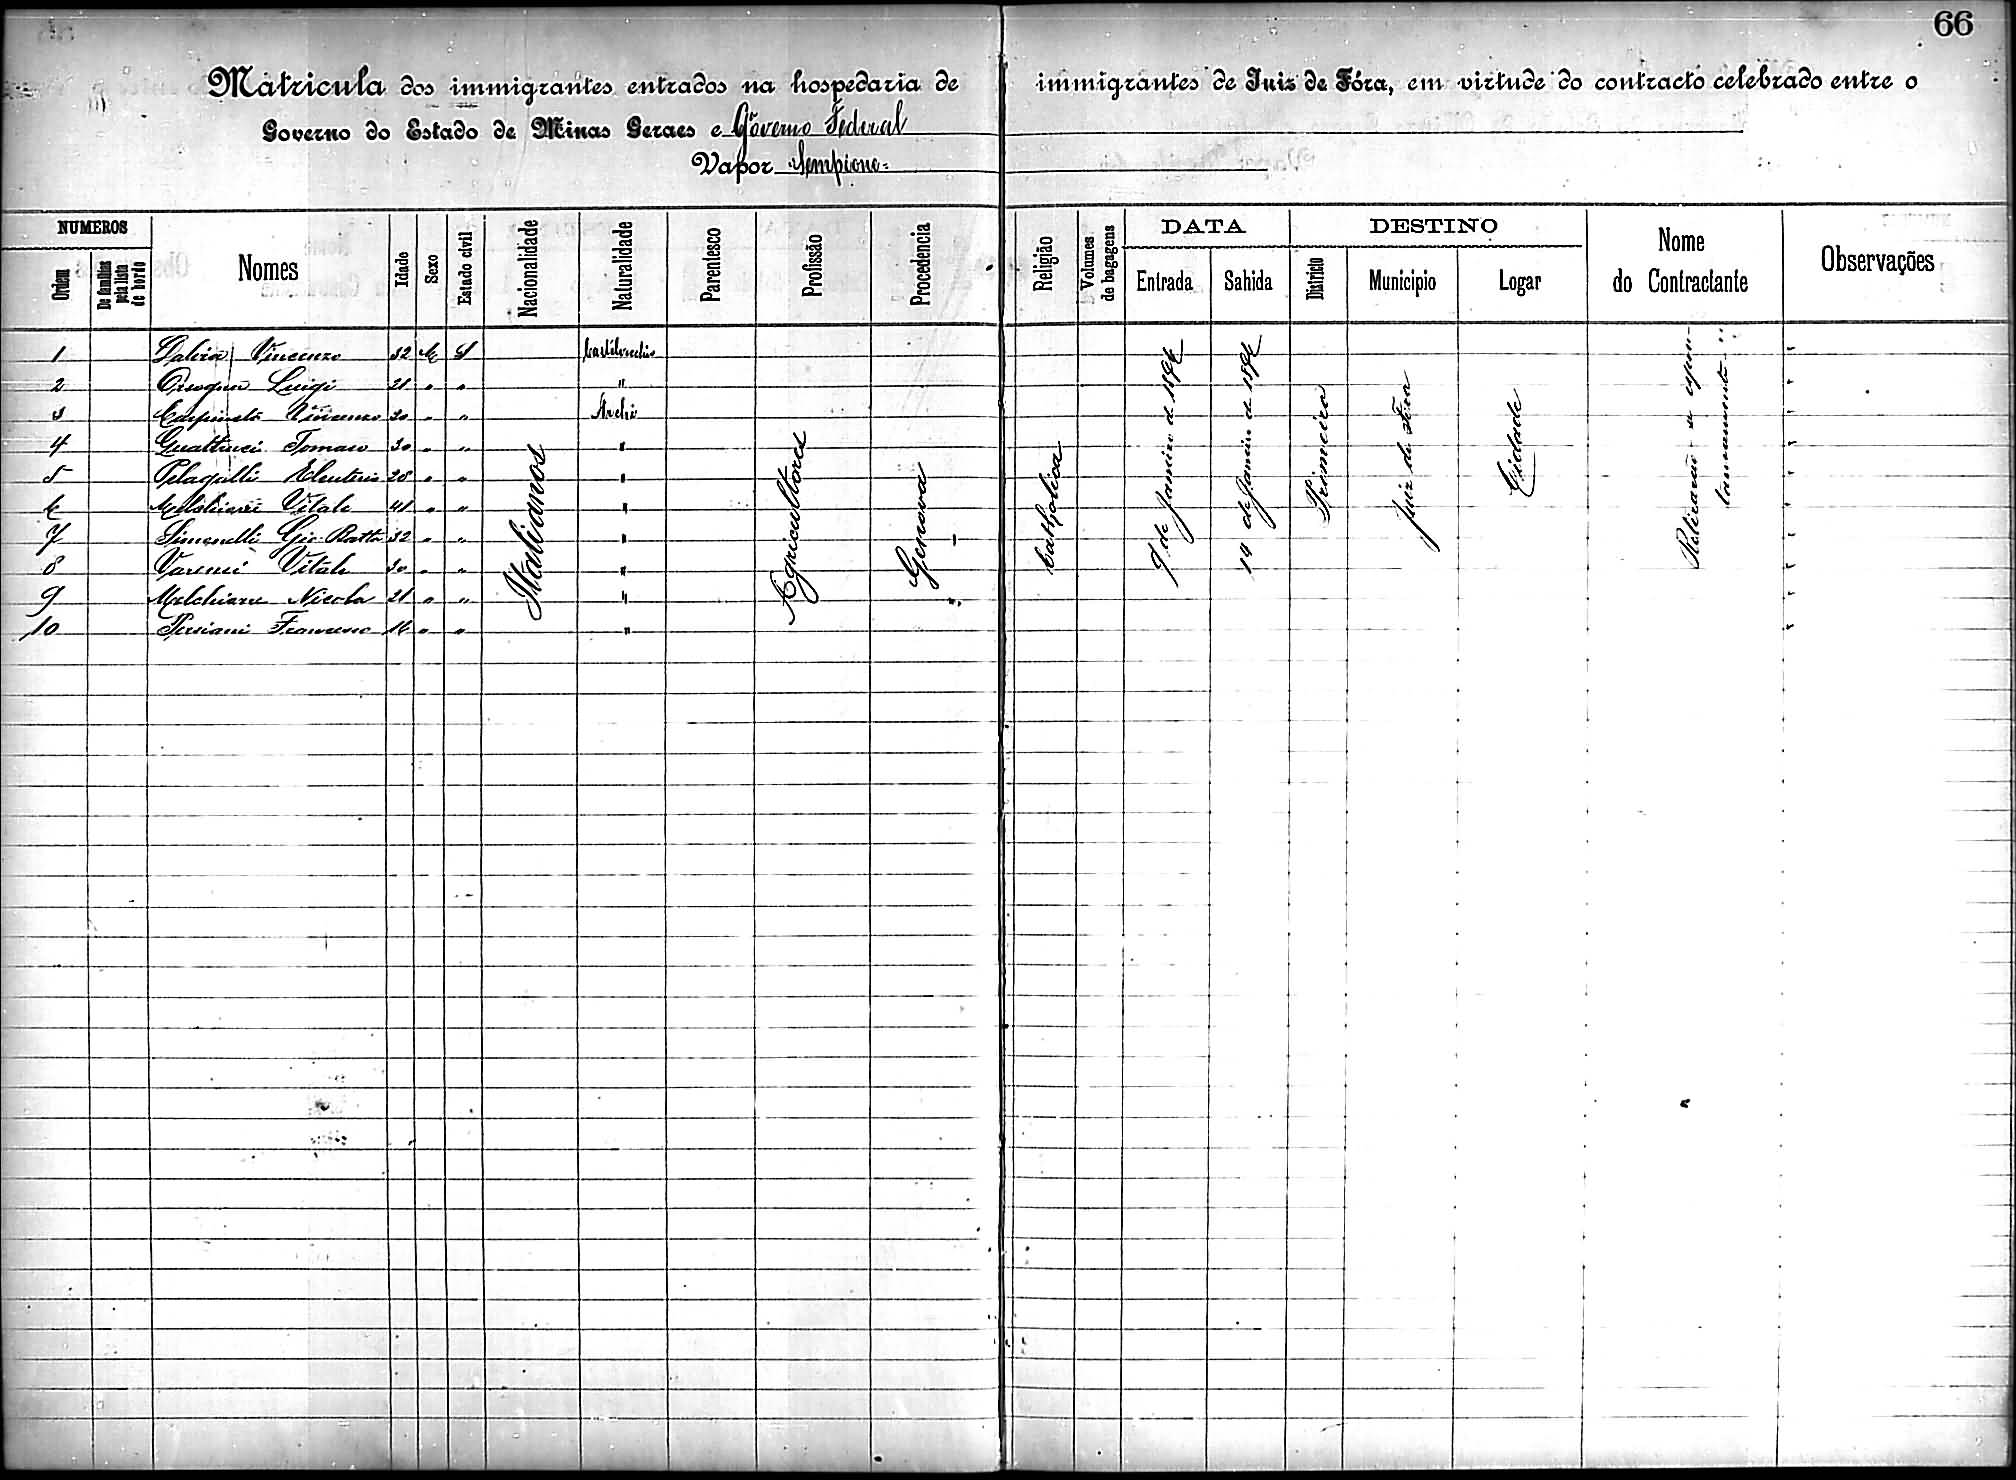 66
Matricula dos immigrantes entrados na hospedaria de immigrantes de Juiz de Fóra, em virtude do contracto celebrado entre o
Governo do Estado de Minas Geraes e Governo Federal
Vapor Sempione
NUMEROS
Ordem
De familias pela lista de bordo
Nomes
Idade
Sexo
Estado civil
Nacionalidade
Naturalidade
Parentesco
Profissão
Procedencia
Religião
Volumes de bagagens
DATA
Entrada
Sahida
DESTINO
Districto
Municipio
Logar
Nome
do Contractante
Observações
1 Vincenzo 32 M S
2 Luigi 21 " " "
3 Vincenzo 30 " " Archi
4 Tomaso 30 " " "
5 28 " " "
6 Vitale 41 " " "
7 Simonelli Gio Batta 32 " " "
8 Vitale 30 " " "
9 Melchiorre Nicola 21 " " "
10 Persiani Francesco 16 " " "
Italianos
Agricultores
Genova
Catholica
9 de Janeiro de 1896
14 de Janeiro de 1896
Primeira
Juiz de Fora
Cidade
Retirarão se espon-
taneamente